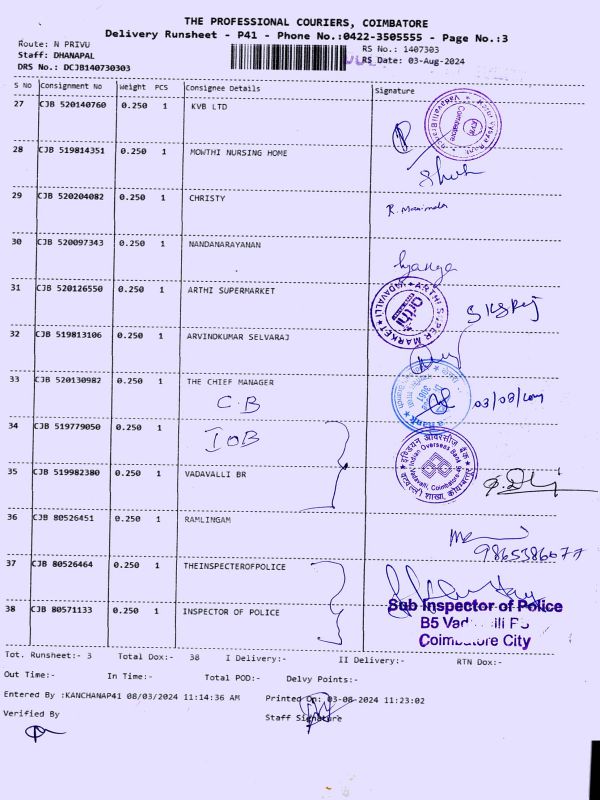 THE PROFESSIONAL COURIERS, COIMBATORE
Delivery Runsheet - P41 - Phone No.:0422-3505555 - Page No.:3
Route: N PRIVU RS No.: 1407303
Staff: DHANAPAL RS Date: 03-Aug-2024
DRS No.: DCJB140730303
S No Consignment No Weight PCS Consignee Details Signature
27 CJB 520140760 0.250 1 KVB LTD
28 CJB 519814351 0.250 1 MOWTHI NURSING HOME
29 CJB 520204082 0.250 1 CHRISTY
30 CJB 520097343 0.250 1 NANDANARAYANAN
31 CJB 520126550 0.250 1 ARTHI SUPERMARKET
ARTHI SUPER MARKET VADAVALLI
arthi
32 CJB 519813106 0.250 1 ARVINDKUMAR SELVARAJ
33 CJB 520130982 0.250 1 THE CHIEF MANAGER
C.B
03/08/
34 CJB 519779050 0.250 1
IOB
इण्डियन ओवरसीज़ बैंक
Indian Overseas Bank
Vadavalli, Coimbatore-
35 CJB 519982380 0.250 1 VADAVALLI BR
36 CJB 80526451 0.250 1 RAMLINGAM
9865386677
37 CJB 80526464 0.250 1 THEINSPECTEROFPOLICE
38 CJB 80571133 0.250 1 INSPECTOR OF POLICE
Sub Inspector of Police
B5
Coimbatore City
Tot. Runsheet:- 3 Total Dox:- 38 I Delivery:- II Delivery:- RTN Dox:-
Out Time:- In Time:- Total POD:- Delvy Points:-
Entered By :KANCHANAP41 08/03/2024 11:14:36 AM Printed On: 03-08-2024 11:23:02
Verified By Staff Signature